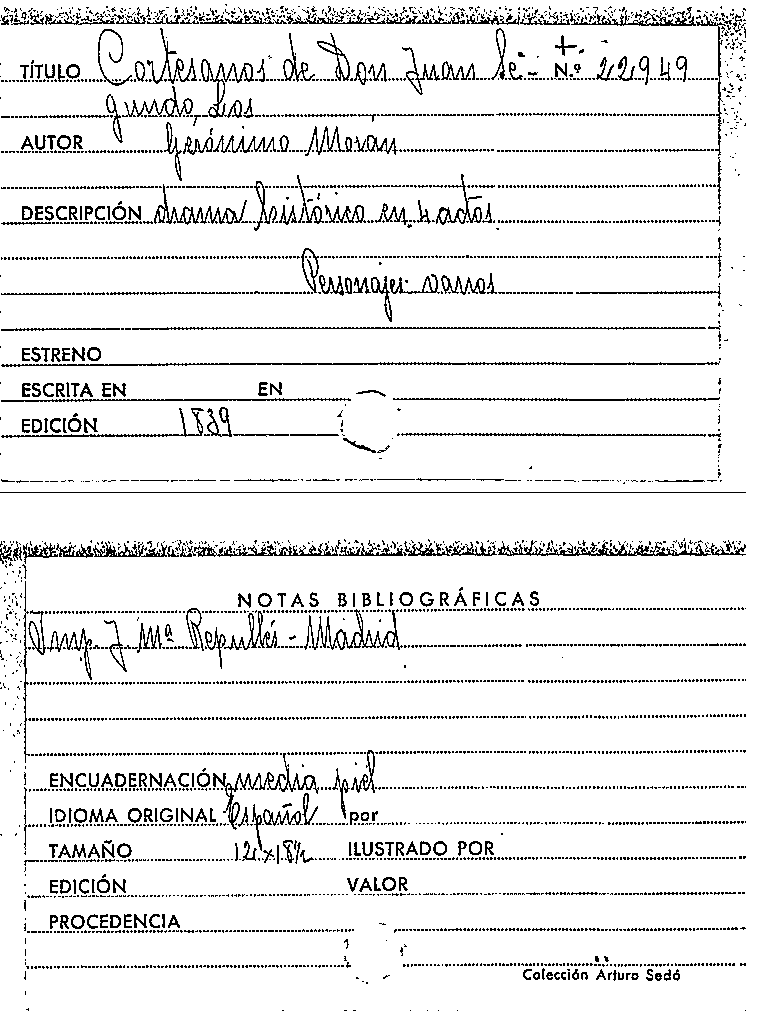 TÍTULO Cortesanos de Don Juan Se- + N.º 22949
gundo, Los
AUTOR Gerónimo Morán
DESCRIPCIÓN drama histórico en 4 actos
Personajes varios
ESTRENO
ESCRITA EN EN
EDICIÓN 1839
NOTAS BIBLIOGRÁFICAS
Imp. J Mª Repullés - Madrid
ENCUADERNACIÓN media piel
IDIOMA ORIGINAL Español por
TAMAÑO 12x18½ ILUSTRADO POR
EDICIÓN VALOR
PROCEDENCIA
Colección Arturo Sedó